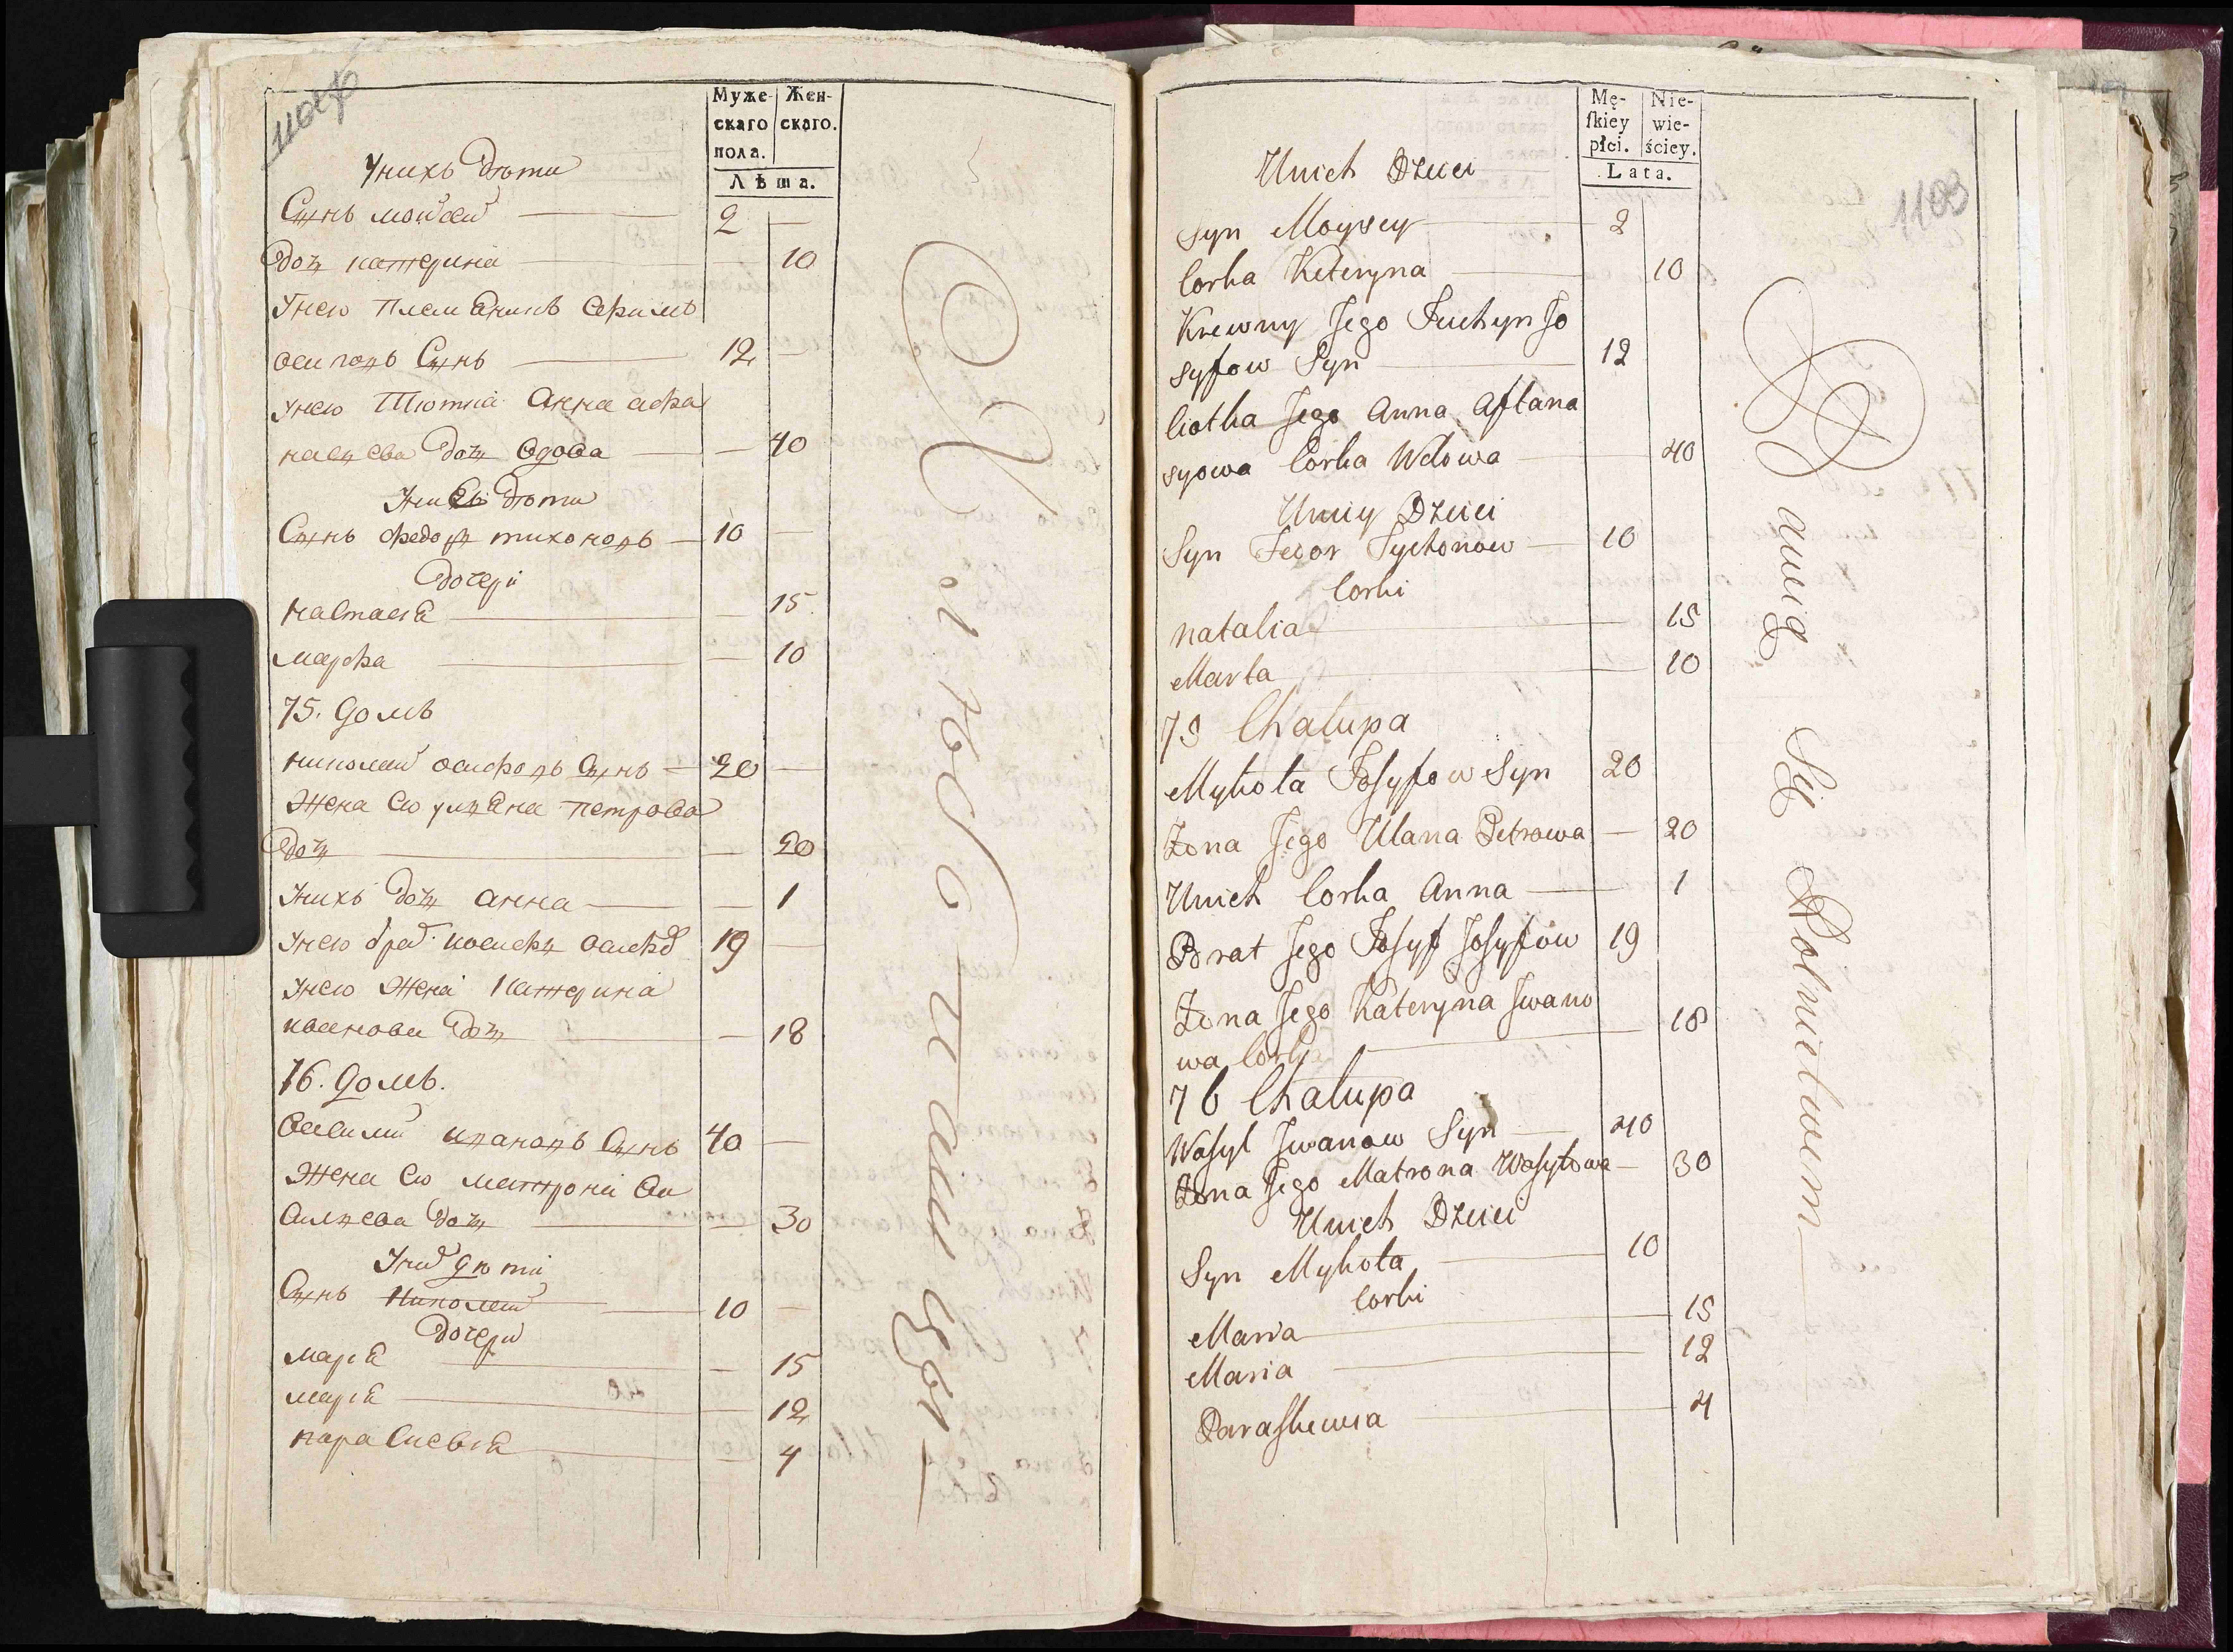 Муже-
скаго
пола.
Жен-
скаго.
Лѣта.
У нихъ дѣти
Сынъ мойсей 2
дочь катерина 10
У нею племеникъ
осиповъ Сынъ 12
У нею тіотка анна афа
насьева дочь вдова 40
У ней дѣти
Сынъ федоръ тихоновъ 10
дочери
настасія 15
марфа 10
75. домъ
николай осифовъ Сынъ 20
Жена ею уліяна петрова
дочь 20
У нихъ дочь анна 1
У нею брат иосифъ осифов 19
У нею жена катерина
иванова дочь 18
76. домъ.
василий ивановъ Сынъ 40
Жена ею матрона ва
сильева дочь 30
У них дѣти
Сынъ николай 10
дочери
марія 15
марія 12
парасковія 4
Mę-
ſkiey
płci.
Nie-
wie-
ściey.
Lata.
1103
Unich Dzieci
Syn Moysey 2
Corka Kateryna 10
Krewny Jego Juchym Jo
syfow Syn 12
Ciotka Jego Anna Aftana
syowa Corka Wdowa 40
Uniey Dzieci
Syn Fedor Tychonow 10
Corki
Natalia 15
Marta 10
75 Chalupa
Mykola Josyfow Syn 20
Żona Jego Ulana Petrowa 20
Unich Corka Anna 1
Brat Jego Josyf Josyfow 19
Żona Jego Kateryna Jwano
wa Corka 18
76 Chalupa
Wasyl Jwanow Syn 40
Żona Jego Matrona Wasylowa 30
Unich Dzieci
Syn Mykola 10
Corki
Maria 15
Maria 12
Paraskewia 4
Bawią Się Rolnictwem